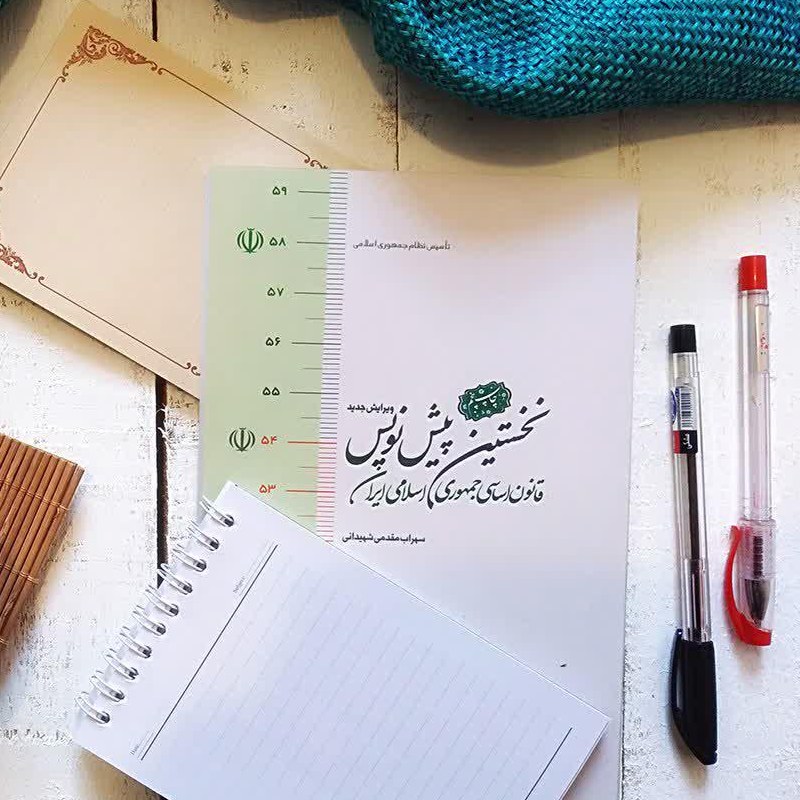 ۵۹
۵۸
۵۷
۵۶
۵۵
۵۴
۵۳
تأسیس نظام جمهوری اسلامی
ویرایش جدید
نخستین پیش‌نویس
قانون اساسی جمهوری اسلامی ایران
سهراب مقدمی شهیدانی
Subject:
Date: